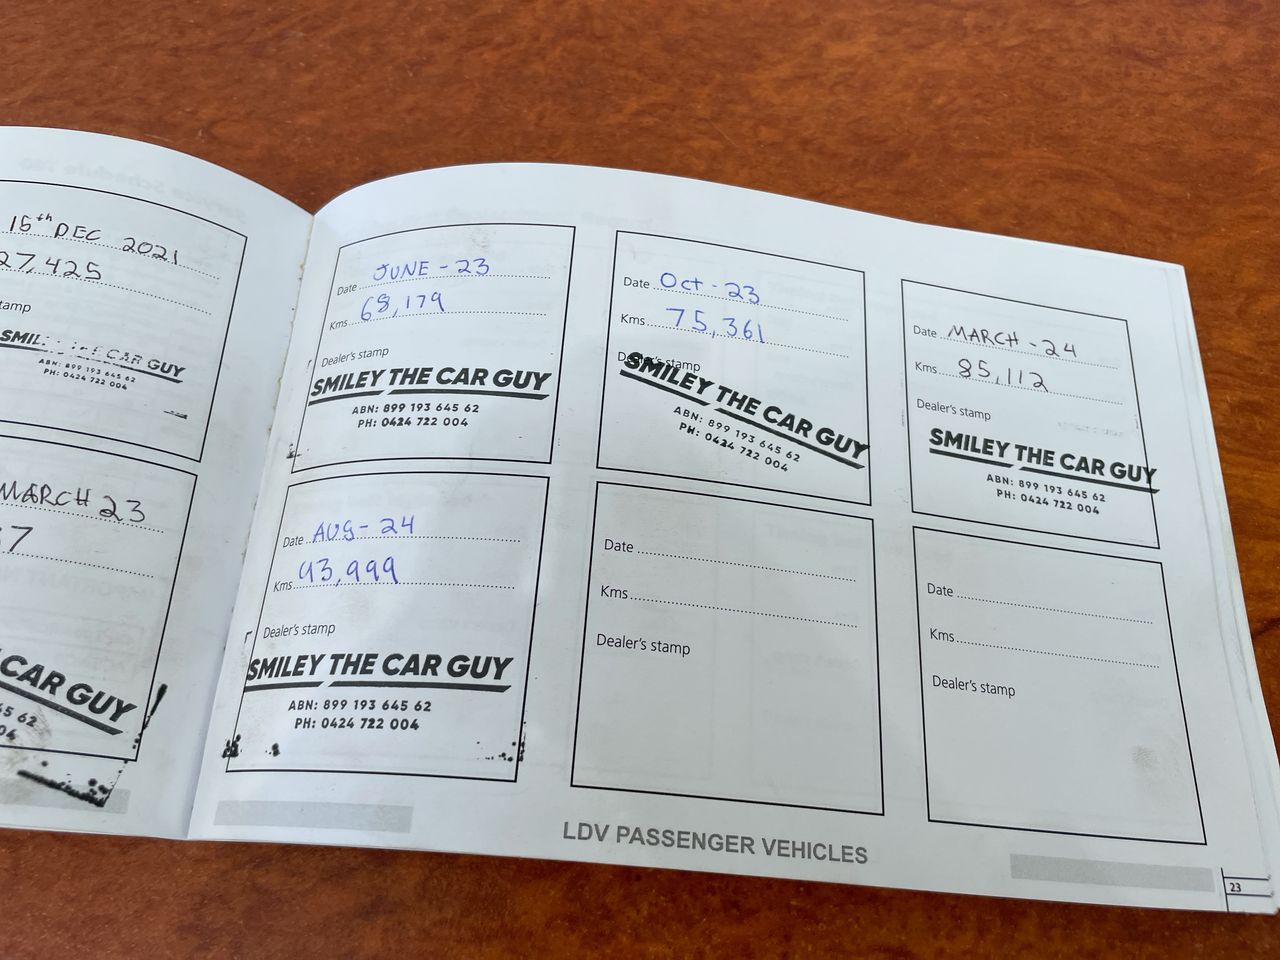 15th DEC 2021
27,425
tamp
CAR GUY
ABN: 899 193 645 62
PH: 0424 722 004
MARCH 23
7
CAR GUY
45 62
04
Date JUNE - 23
Kms 68,179
Dealer's stamp
SMILEY THE CAR GUY
ABN: 899 193 645 62
PH: 0424 722 004
Date Oct - 23
Kms 75,361
Dealer's stamp
SMILEY THE CAR GUY
ABN: 899 193 645 62
PH: 0424 722 004
Date MARCH - 24
Kms 85,112
Dealer's stamp
SMILEY THE CAR GUY
ABN: 899 193 645 62
PH: 0424 722 004
Date AUG - 24
Kms 93,999
Dealer's stamp
SMILEY THE CAR GUY
ABN: 899 193 645 62
PH: 0424 722 004
Date
Kms
Dealer's stamp
Date
Kms
Dealer's stamp
LDV PASSENGER VEHICLES
23